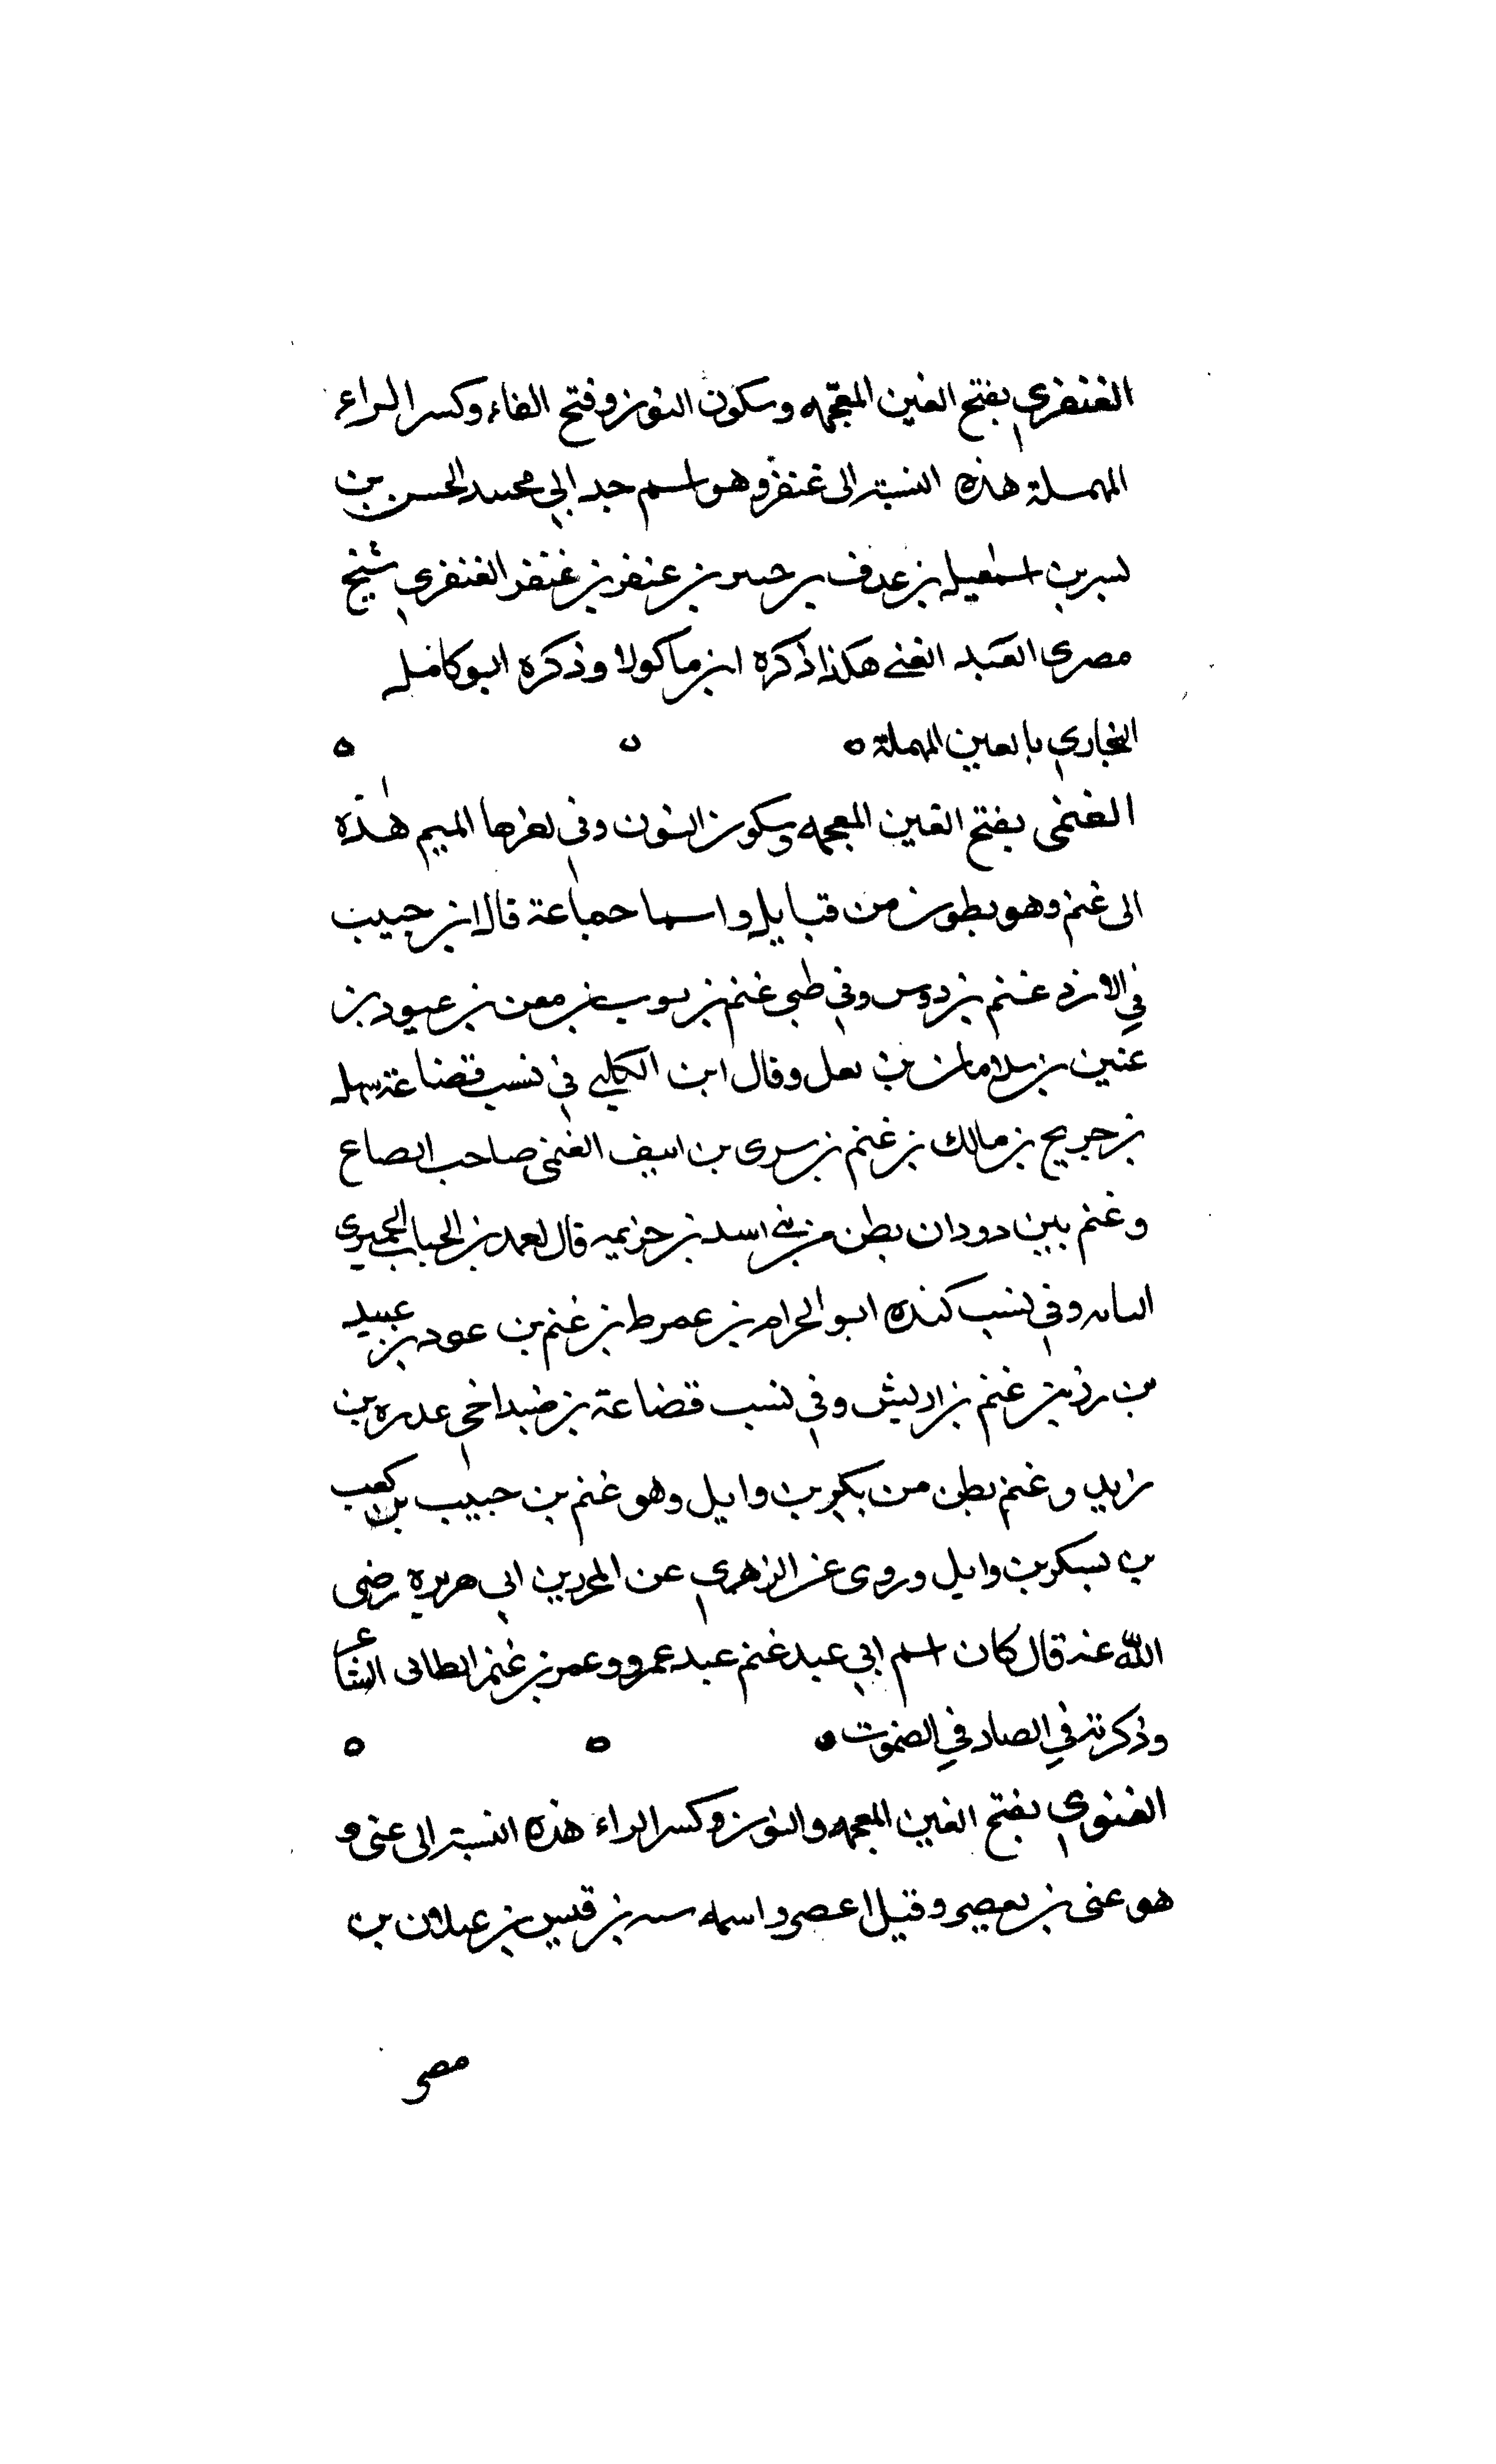 الغنفري بفتح الغين المعجمه وسكون النون وفتح الفاء وكسر الراء
المهملة هذه النسبة الى غنفر وهو اسم جد ابي محمد الحسن بن
بن اسمعيل بن بن عنفر بن غنفر الغنفري شيخ
مصرى الغنى هكذا ذكره ابن ماكولا وذكره ابو كامل
البخاري بالعين المهملة ٥ ٥ ٥
الغنمى بفتح الغين المعجمه وسكون النون وفي اخرها الميم هذه
الى غنم وهو بطون من قبايل واسما جماعة قال ابن حبيب
في الازد غنم بن دوس وفي طي غنم بن ثوب بن معن بن عتود بن
عنين بن سلامان بن ثعل وقال ابن الكلبي في نسب قضاعة سهل
بن جريج بن مالك بن غنم بن سرى بن انيف الغنمى صاحب الصاع
وغنم بين دودان بطن من بني اسد بن خزيمه قال بن الحباب الحميري
وفي نسب كنده ابو الحرام بن عمرط بن غنم بن عود بن عبيد
بن زر بن غنم بن اريش وفي نسب قضاعة بن ضبه اخي عدره بن
زايد وغنم بطن من بكر بن وايل وهو غنم بن حبيب بن كعب
بن يسكر بن وايل وروى عن الزهري عن المحرر بن ابي هريرة رضى
الله عنه قال كان اسم ابي عبد غنم عبد عمرو وعمر بن غنم الطائى الشاعر
وذكرته في الصاد في الصموت ٥ ٥ ٥
الغنوي بفتح الغين المعجمه والنون وكسر الراء هذه النسبة الى غنى و
هو غنى بن يعصر وقيل اعصر واسمه منبه بن قيس بن عيلان بن
مصر